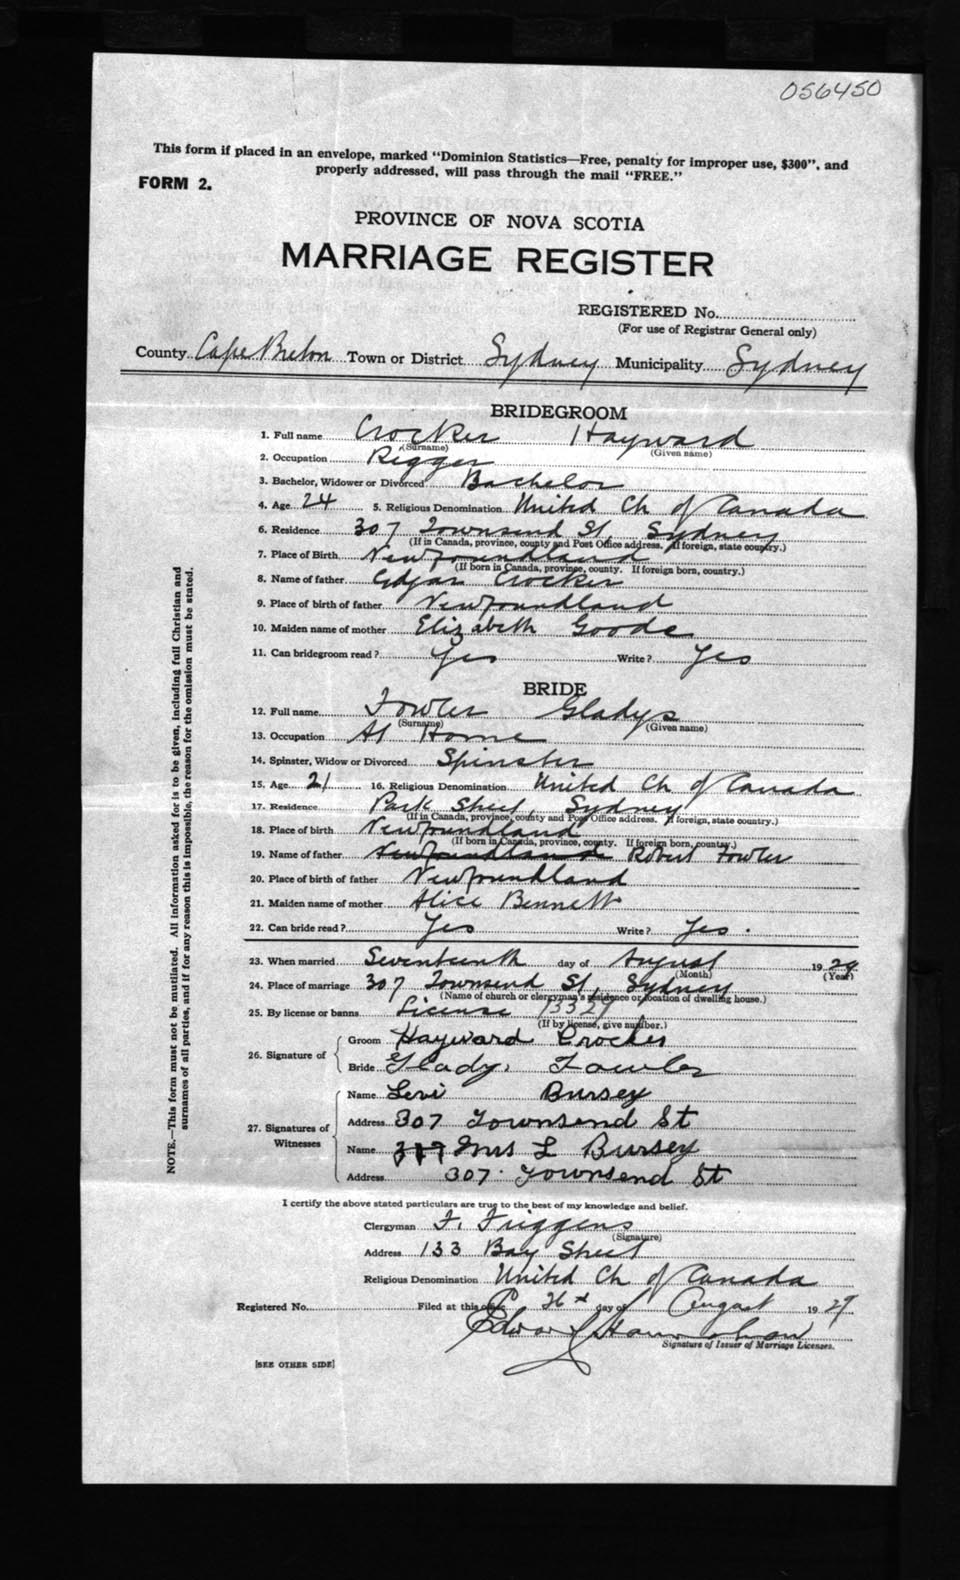 056450
This form if placed in an envelope, marked "Dominion Statistics—Free, penalty for improper use, $300", and
properly addressed, will pass through the mail "FREE."
FORM 2.
PROVINCE OF NOVA SCOTIA
MARRIAGE REGISTER
REGISTERED No.
(For use of Registrar General only)
County Cape Breton Town or District Sydney Municipality Sydney
BRIDEGROOM
1. Full name Crocker Hayward
(Surname) (Given name)
2. Occupation Rigger
3. Bachelor, Widower or Divorced Bachelor
4. Age 24 5. Religious Denomination United Ch of Canada
6. Residence 307 Townsend St, Sydney
(If in Canada, province, county and Post Office address. If foreign, state country.)
7. Place of Birth Newfoundland
(If born in Canada, province, county. If foreign born, country.)
8. Name of father Edgar Crocker
9. Place of birth of father Newfoundland
10. Maiden name of mother Elizabeth Goode
11. Can bridegroom read? Yes Write? Yes
BRIDE
12. Full name Fowler Gladys
(Surname) (Given name)
13. Occupation At Home
14. Spinster, Widow or Divorced Spinster
15. Age 21 16. Religious Denomination United Ch of Canada
17. Residence Park Street, Sydney
(If in Canada, province, county and Post Office address. If foreign, state country.)
18. Place of birth Newfoundland
(If born in Canada, province, county. If foreign born, country.)
19. Name of father Newfoundland Robert Fowler
20. Place of birth of father Newfoundland
21. Maiden name of mother Alice Bennett
22. Can bride read? Yes Write? Yes.
23. When married Seventeenth day of August 1929
(Month) (Year)
24. Place of marriage 307 Townsend St, Sydney
(Name of church or clergyman's residence or location of dwelling house.)
25. By license or banns License 13329
(If by license, give number.)
26. Signature of
Groom Hayward Crocker
Bride Gladys Fowler
27. Signatures of Witnesses
Name Levi Bursey
Address 307 Townsend St
Name Mrs L Bursey
Address 307 Townsend St
I certify the above stated particulars are true to the best of my knowledge and belief.
Clergyman F. Friggens
(Signature)
Address 133 Bay Street
Religious Denomination United Ch of Canada
Registered No. Filed at this office 26 day of August 1929
Signature of Issuer of Marriage Licenses.
[SEE OTHER SIDE]
NOTE.—This form must not be mutilated. All information asked for is to be given, including full Christian and
surnames of all parties, and if for any reason this is impossible, the reason for the omission must be stated.